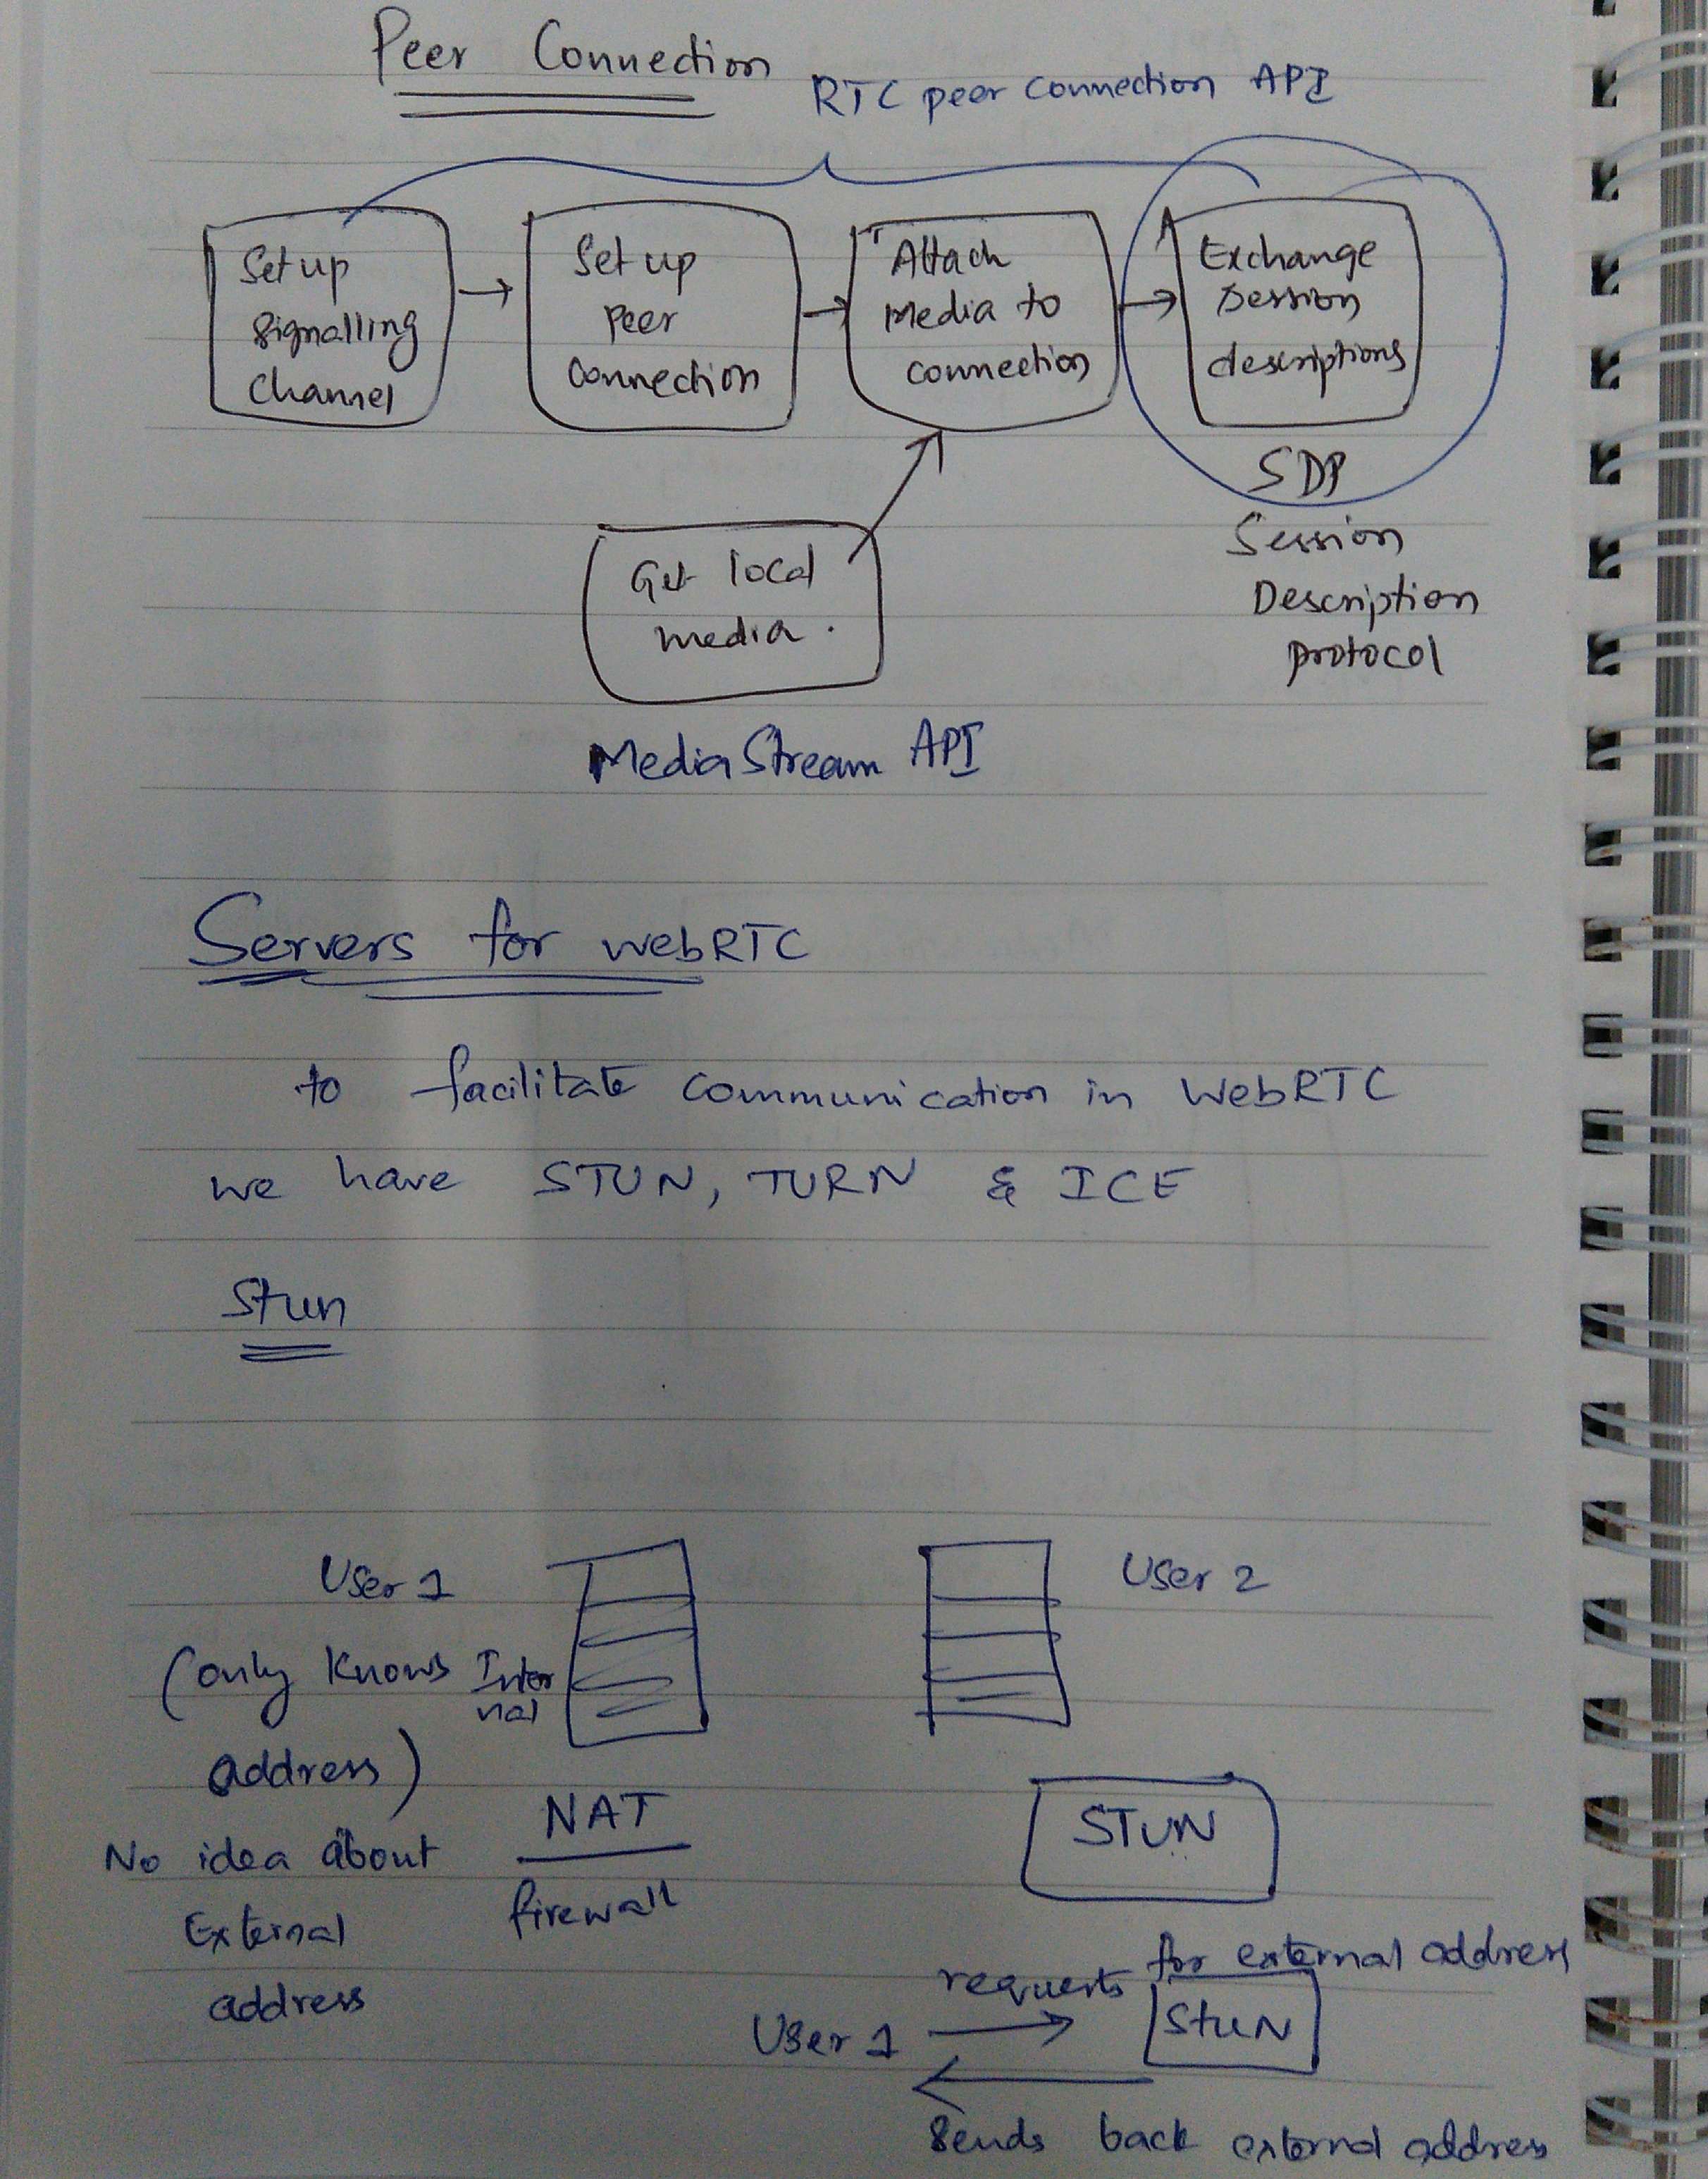 Peer Connection
RTC peer connection API
Set up
Signalling
Channel
Set up
Peer
Connection
Attach
Media to
connection
Exchange
Session
descriptions
SDP
Session
Description
protocol
Get local
media.
MediaStream API
Servers for webRTC
to facilitate communication in WebRTC
we have STUN, TURN & ICE
Stun
User 1
User 2
(only knows Inter
nal
address)
NAT
firewall
STUN
No idea about
External
address
requests for external address
User 1
STUN
Sends back external address